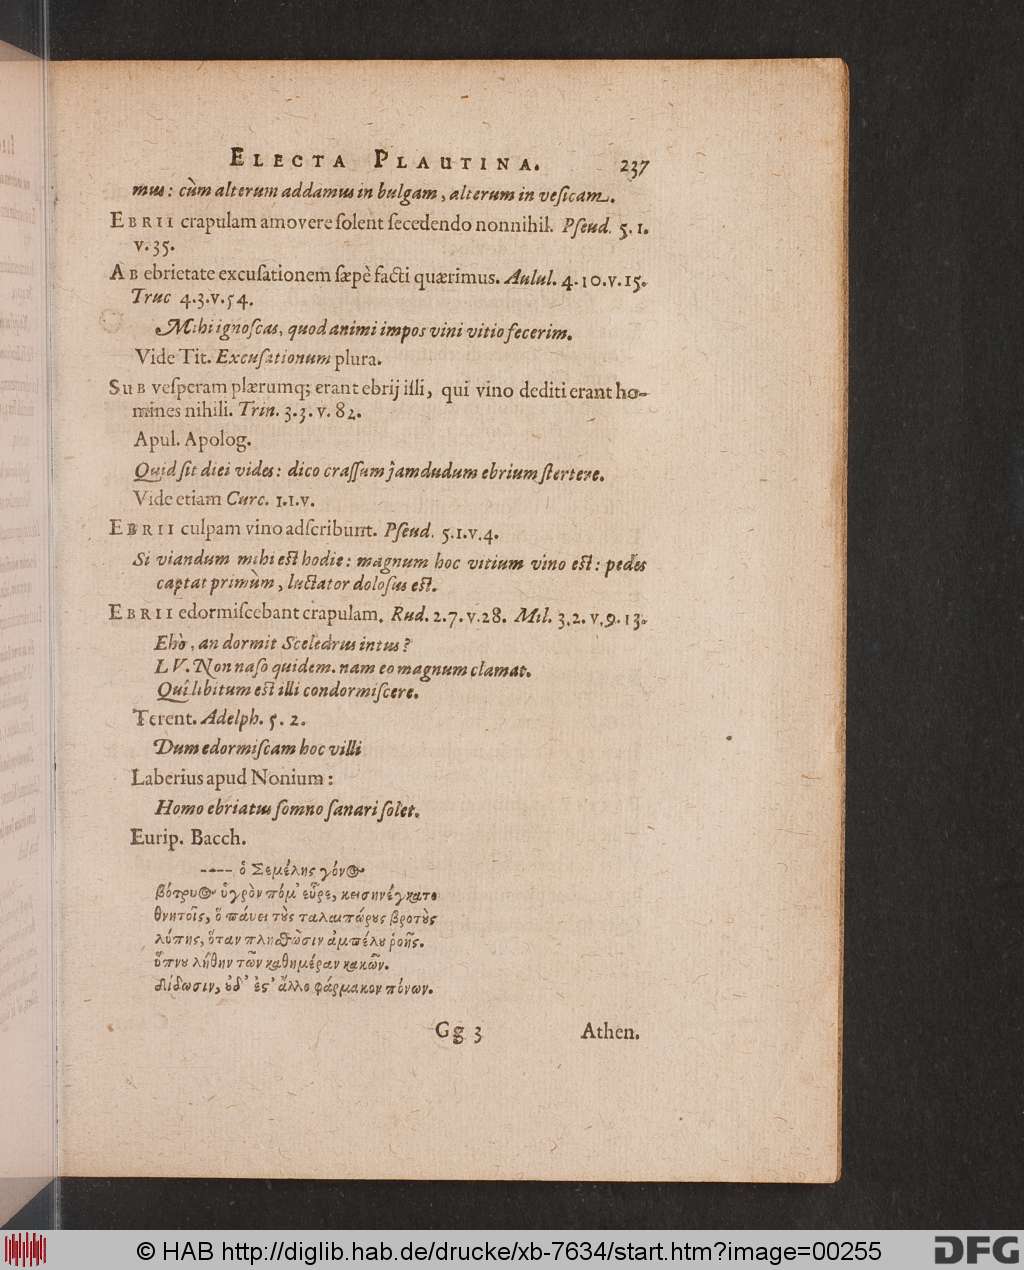 ELECTA PLAUTINA. 237
mus: cùm alterum addamus in bulgam, alterum in veſicam.
EBRII crapulam amovere ſolent ſecedendo nonnihil. Pſeud. 5. 1.
v. 35.
AB ebrietate excuſationem ſæpè facti quærimus. Aulul. 4. 10. v. 15.
Truc 4. 3. v. 54.
Mihi ignoſcas, quod animi impos vini vitio fecerim.
Vide Tit. Excuſationum plura.
SUB veſperam plærumq; erant ebrij illi, qui vino dediti erant ho-
mines nihili. Trin. 3. 3. v. 82.
Apul. Apolog.
Quid ſit diei vides: dico craſſum jamdudum ebrium ſtertere.
Vide etiam Curc. 1.1.v.
EBRII culpam vino adſcribunt. Pſeud. 5.1.v.4.
Si viandum mihi eſt hodie: magnum hoc vitium vino eſt: pedes
captat primùm, luctator doloſus eſt.
EBRII edormiſcebant crapulam. Rud. 2. 7. v. 28. Mil. 3. 2. v. 9. 13.
Ehò, an dormit Sceledrus intus?
LV. Non naſo quidem. nam eo magnum clamat.
Qui libitum eſt illi condormiſcere.
Terent. Adelph. 5. 2.
Dum edormiſcam hoc villi
Laberius apud Nonium:
Homo ebriatus ſomno ſanari ſolet.
Eurip. Bacch.
----- ὁ Σεμέλης γόνος
βότρυος ὑγρὸν πόμ' εὗρε, κεισηνέγκατο
θνητοῖς, ὃ παύει τοὺς ταλαιπώρους βροτοὺς
λύπης, ὅταν πληθῶσιν ἀμπέλου ῥοῆς.
ὕπνου λήθην τῶν καθημέραν κακῶν.
δίδωσιν, οὐδ' ἐς' ἄλλο φάρμακον πόνων.
Gg 3 Athen.
© HAB http://diglib.hab.de/drucke/xb-7634/start.htm?image=00255
DFG